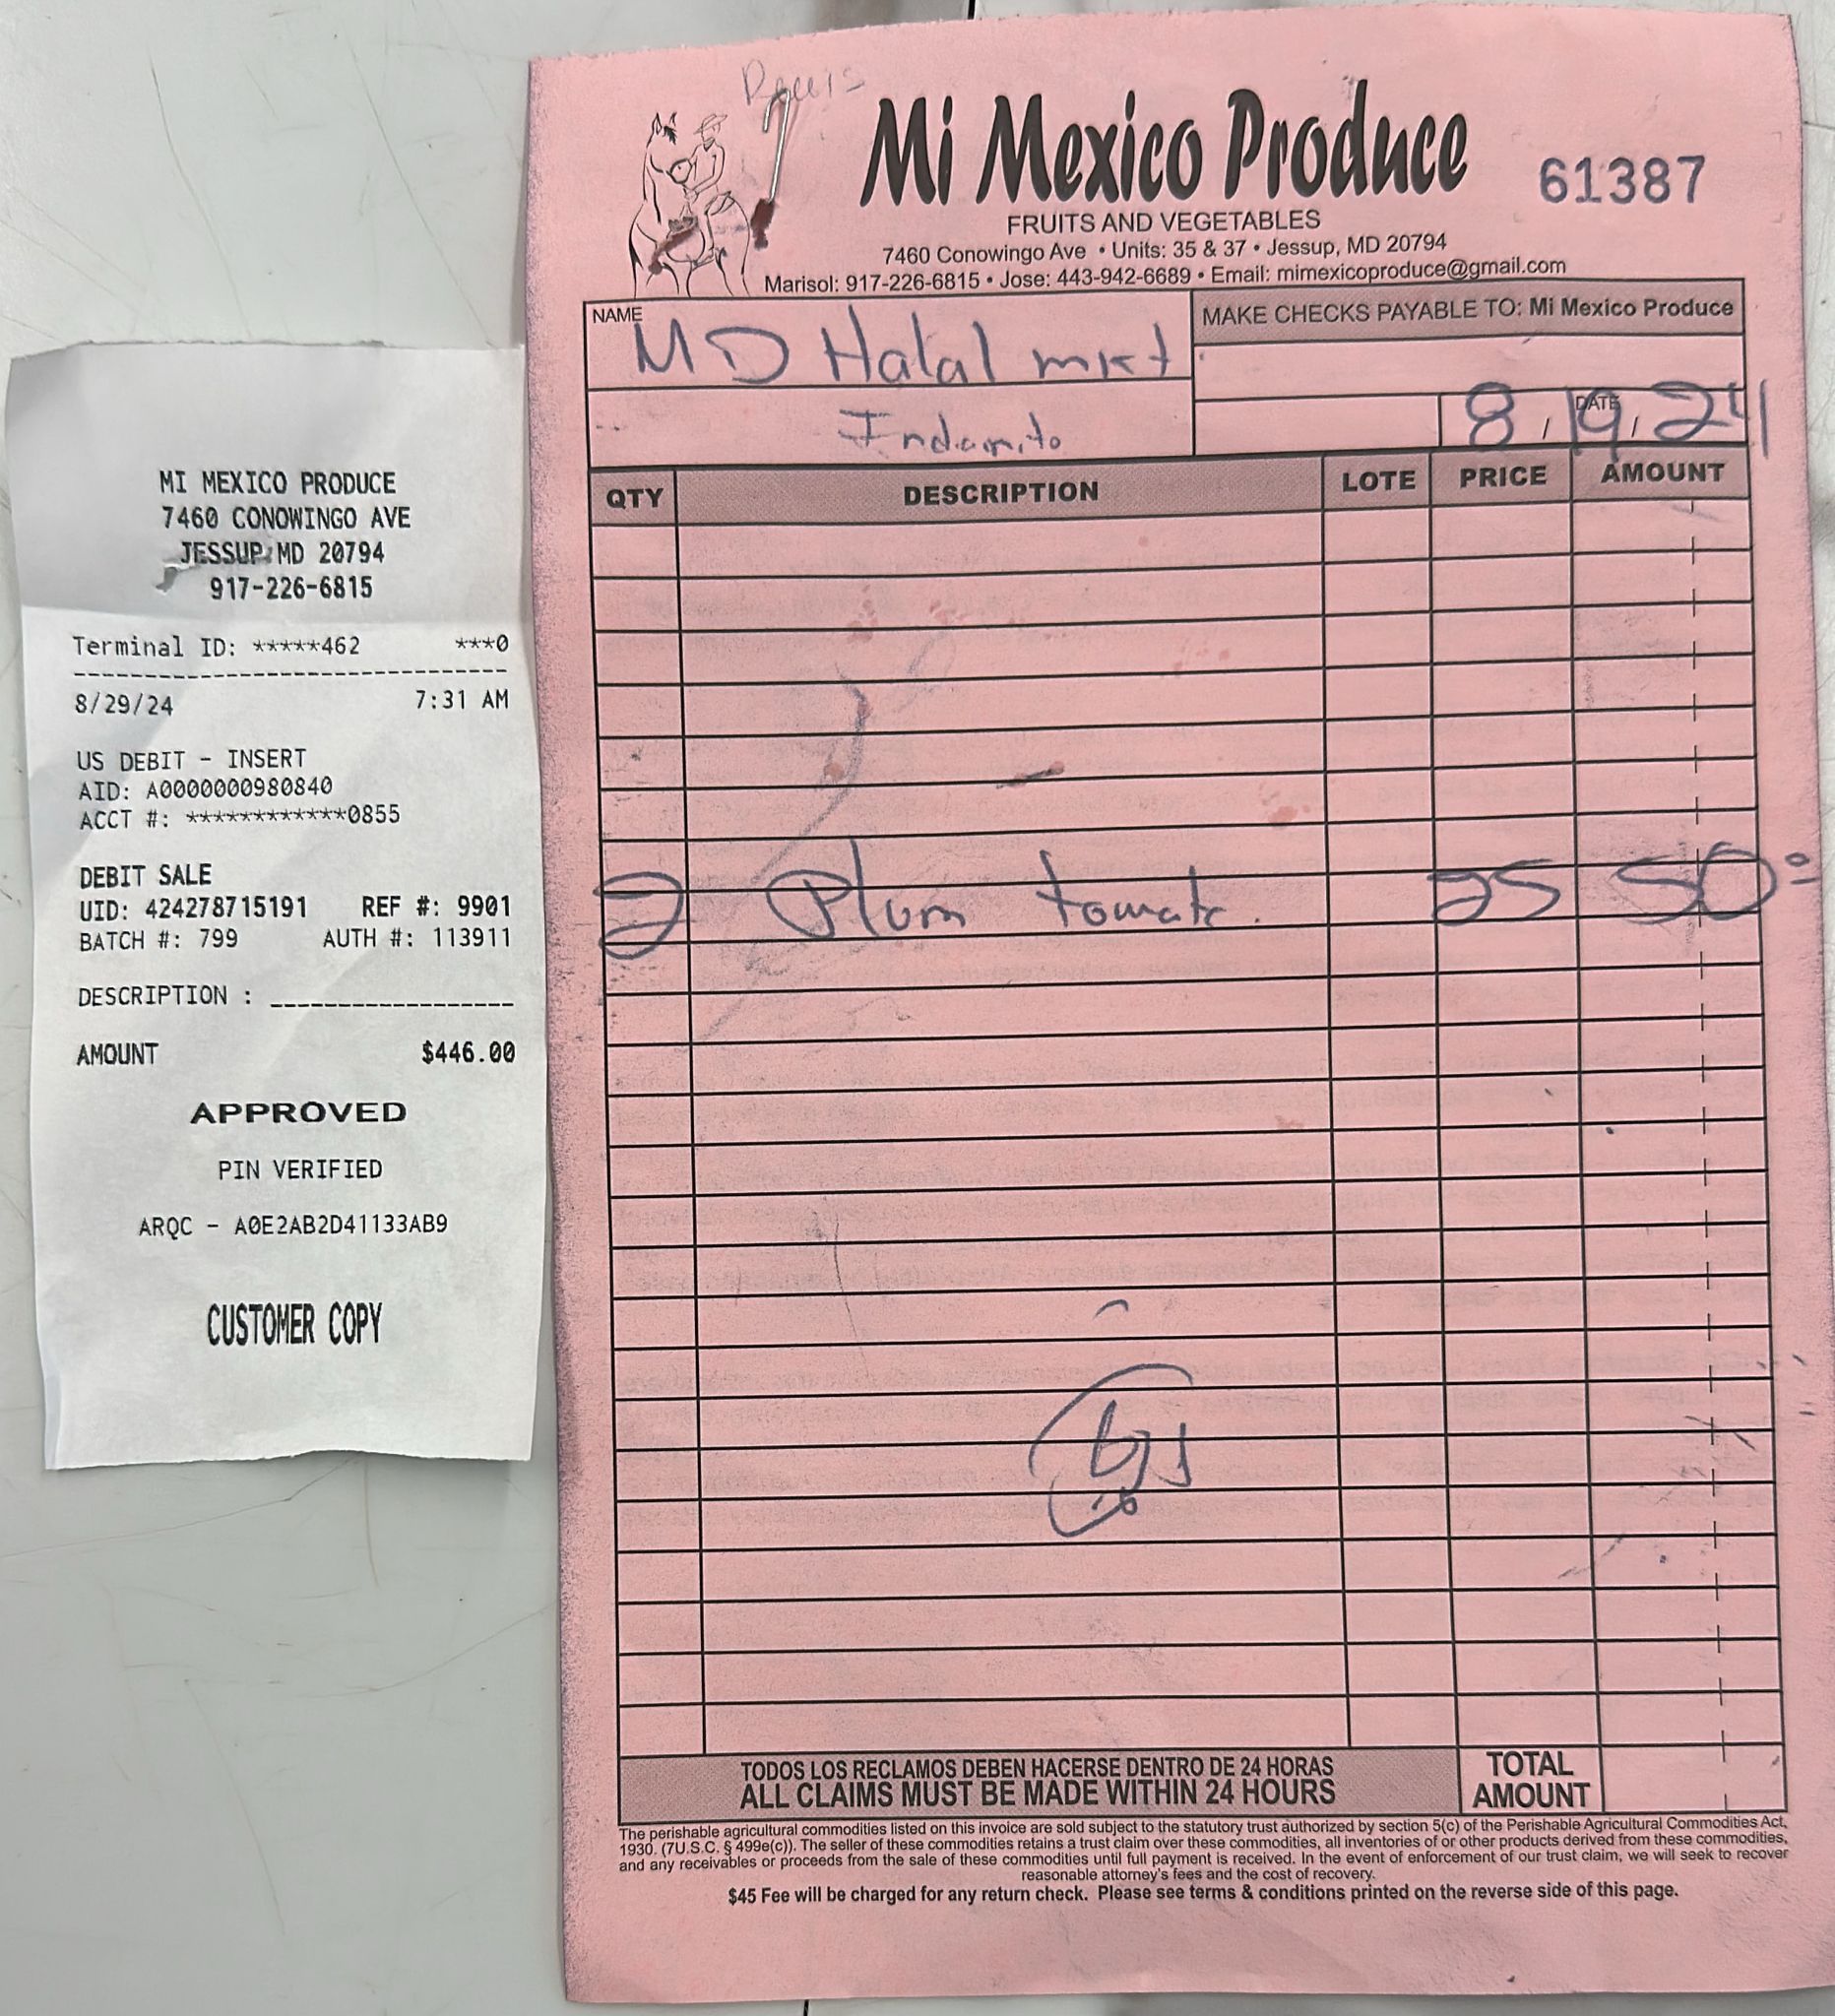 MI MEXICO PRODUCE
7460 CONOWINGO AVE
JESSUP MD 20794
917-226-6815
Terminal ID: *****462 ***0
8/29/24 7:31 AM
US DEBIT - INSERT
AID: A0000000980840
ACCT #: ************0855
DEBIT SALE
UID: 424278715191 REF #: 9901
BATCH #: 799 AUTH #: 113911
DESCRIPTION : __________________
AMOUNT $446.00
APPROVED
PIN VERIFIED
ARQC - A0E2AB2D41133AB9
CUSTOMER COPY
Mi Mexico Produce 61387
FRUITS AND VEGETABLES
7460 Conowingo Ave • Units: 35 & 37 • Jessup, MD 20794
Marisol: 917-226-6815 • Jose: 443-942-6689 • Email: mimexicoproduce@gmail.com
NAME MD Halal mkt
MAKE CHECKS PAYABLE TO: Mi Mexico Produce
DATE 8/19/24
QTY DESCRIPTION LOTE PRICE AMOUNT
2 Plum tomato 25 50
TODOS LOS RECLAMOS DEBEN HACERSE DENTRO DE 24 HORAS
ALL CLAIMS MUST BE MADE WITHIN 24 HOURS
TOTAL
AMOUNT
The perishable agricultural commodities listed on this invoice are sold subject to the statutory trust authorized by section 5(c) of the Perishable Agricultural Commodities Act,
1930. (7U.S.C. § 499e(c)). The seller of these commodities retains a trust claim over these commodities, all inventories of or other products derived from these commodities,
and any receivables or proceeds from the sale of these commodities until full payment is received. In the event of enforcement of our trust claim, we will seek to recover
reasonable attorney's fees and the cost of recovery.
$45 Fee will be charged for any return check. Please see terms & conditions printed on the reverse side of this page.